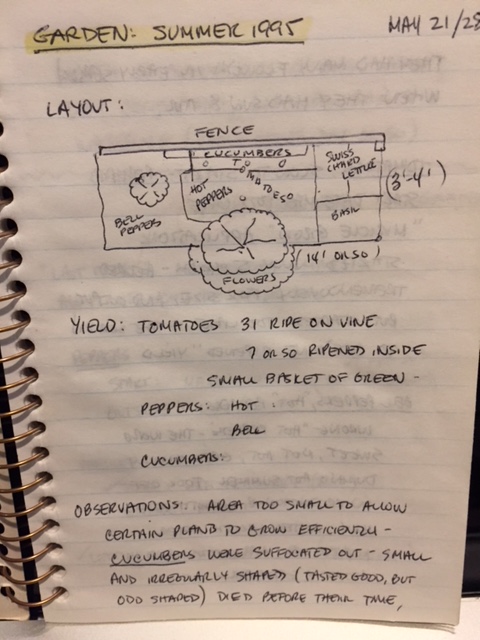 GARDEN: SUMMER 1995
MAY 21/28
LAYOUT:
FENCE
CUCUMBERS
TOMATOES
HOT
PEPPERS
SWISS
CHARD
LETTUCE
(3'-4')
BELL
PEPPERS
BASIL
(14' OR SO)
FLOWERS
YIELD: TOMATOES 31 RIPE ON VINE
7 OR SO RIPENED INSIDE
SMALL BASKET OF GREEN -
PEPPERS: HOT
BELL
CUCUMBERS:
OBSERVATIONS: AREA TOO SMALL TO ALLOW
CERTAIN PLANTS TO GROW EFFICIENTLY -
CUCUMBERS WERE SUFFOCATED OUT - SMALL
AND IRREGULARLY SHAPED (TASTED GOOD, BUT
ODD SHAPED) DIED BEFORE THEIR TIME,